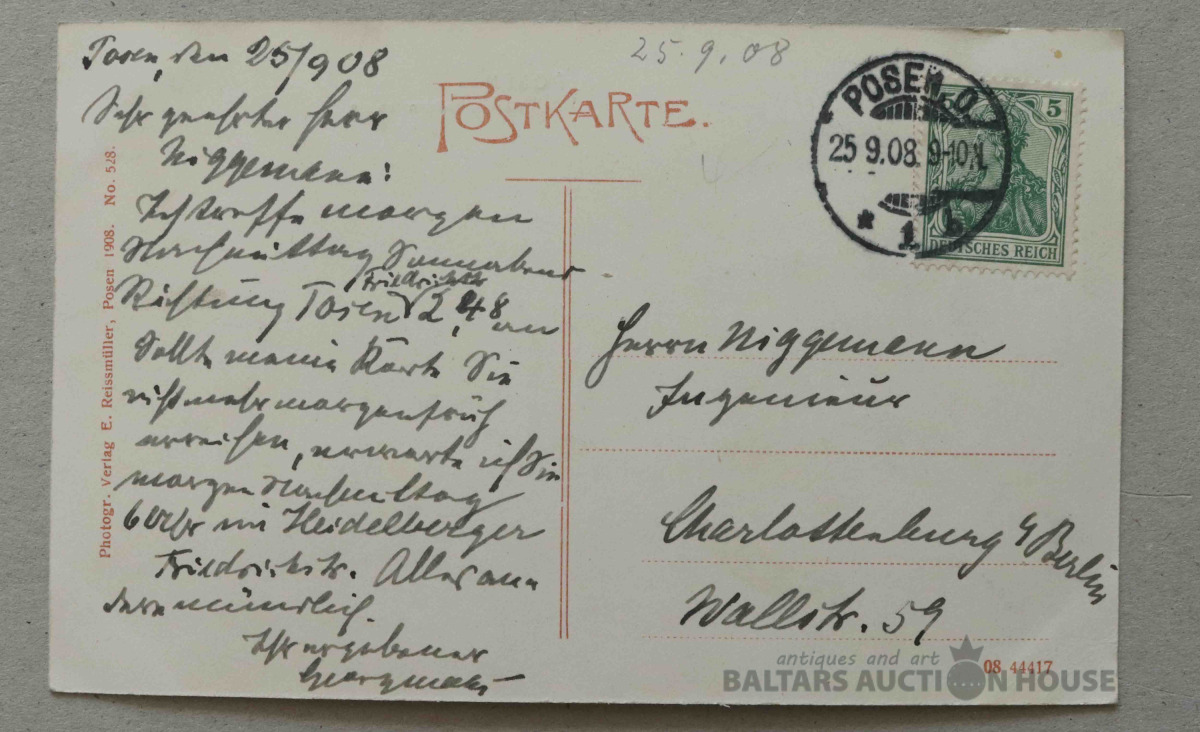 Posen, den 25/9 08
25.9.08
Sehr geehrter Herr
Niggemann!
Ich treffe morgen
Nachmittag Sonnabend
Friedrichstr
Richtung Posen 2,48 an
Sollte meine Karte Sie
nicht mehr morgen früh
erreichen, erwarte ich Sie
morgen Nachmittag
6 Uhr im Heidelberger
Friedrichstr. Alles an-
dere mündlich.
Ihr ergebener
POSTKARTE.
POSEN. O.
25 9.08. 9-10
* 1
5
DEUTSCHES REICH
Herrn Niggemann
Ingenieur
Charlottenburg b/ Berlin
Wallstr. 59
Photogr. Verlag E. Reissmüller, Posen 1908. No. 528.
08 44417
antiques and art
BALTARS AUCTION HOUSE